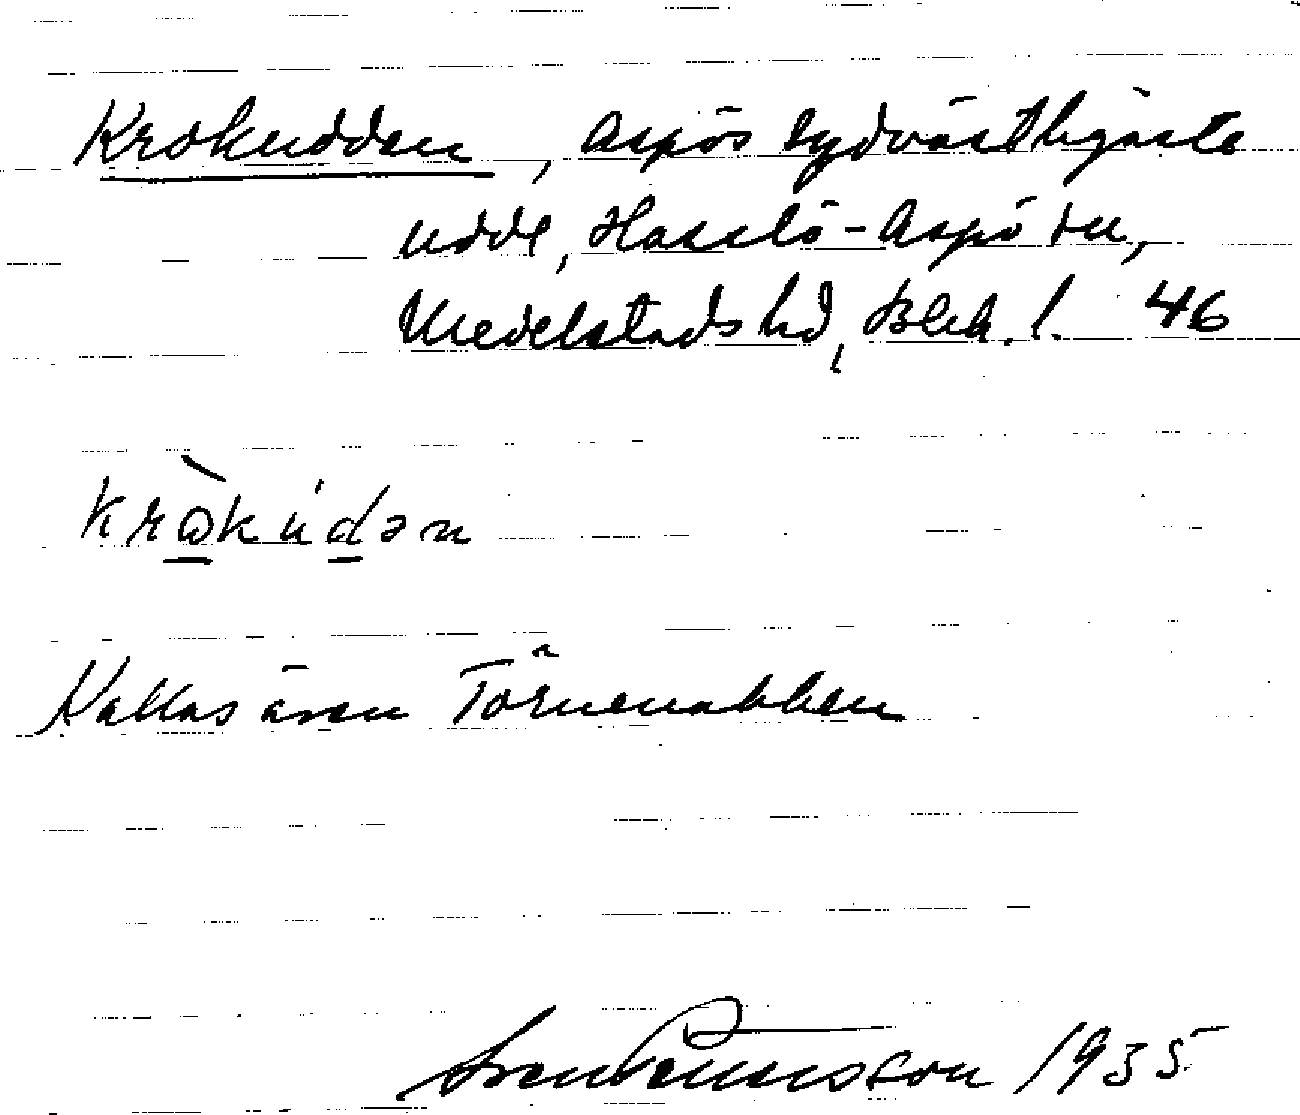 Krokudden, Aspös sydvästligaste
udde, Hasslö-Aspö sn,
Medelstads hd, Blek. l. 46
Kràkúdən
Kallas även Törnenabben
1935